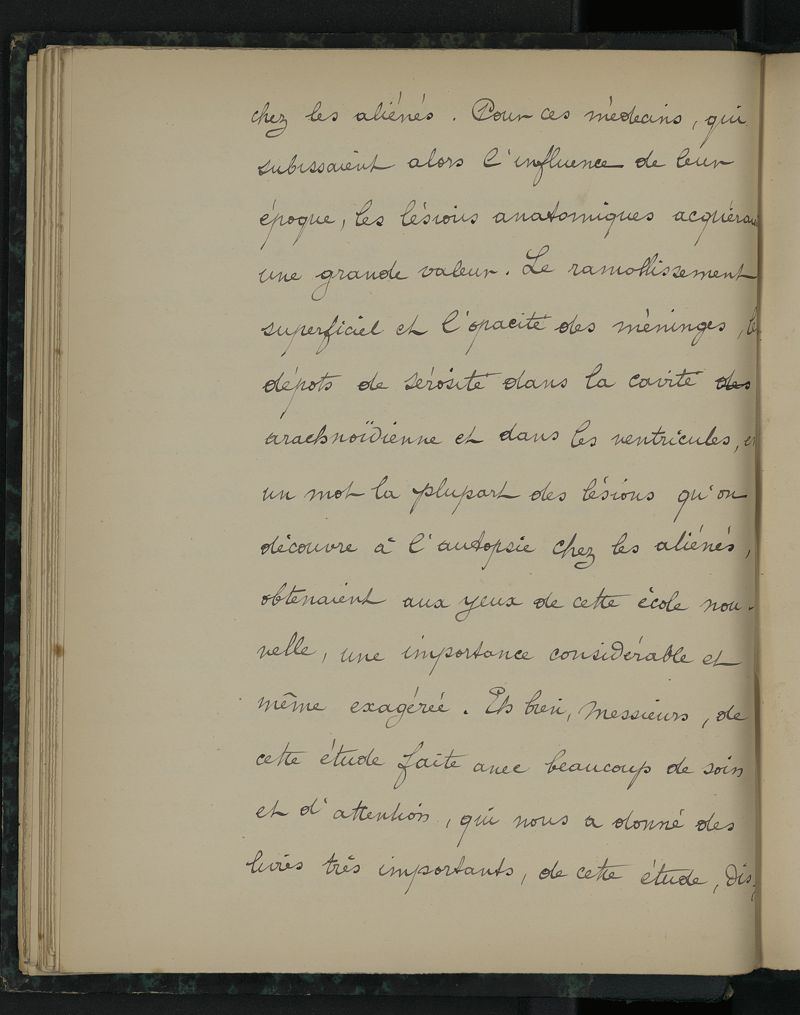 chez les aliénés. Pour ces médecins, qui
subissaient alors l'influence de leur
époque, les lésions anatomiques acquéra
une grande valeur. Le ramollissement
superficiel et l'opacité des méninges, le
dépots de sérosité dans la cavité des
arachnoïdienne et dans les ventricules, en
un mot la plupart des lésions qu'on
découvre à l'autopsie chez les aliénés,
obtenaient aux yeux de cette école nou-
velle, une importance considérable et
même exagérée. Eh bien, Messieurs, de
cette étude faite avec beaucoup de soin
et d'attention, qui nous a donné des
livres très importants, de cette étude, dis